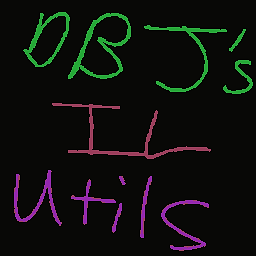 DBJ's
IL
Utils